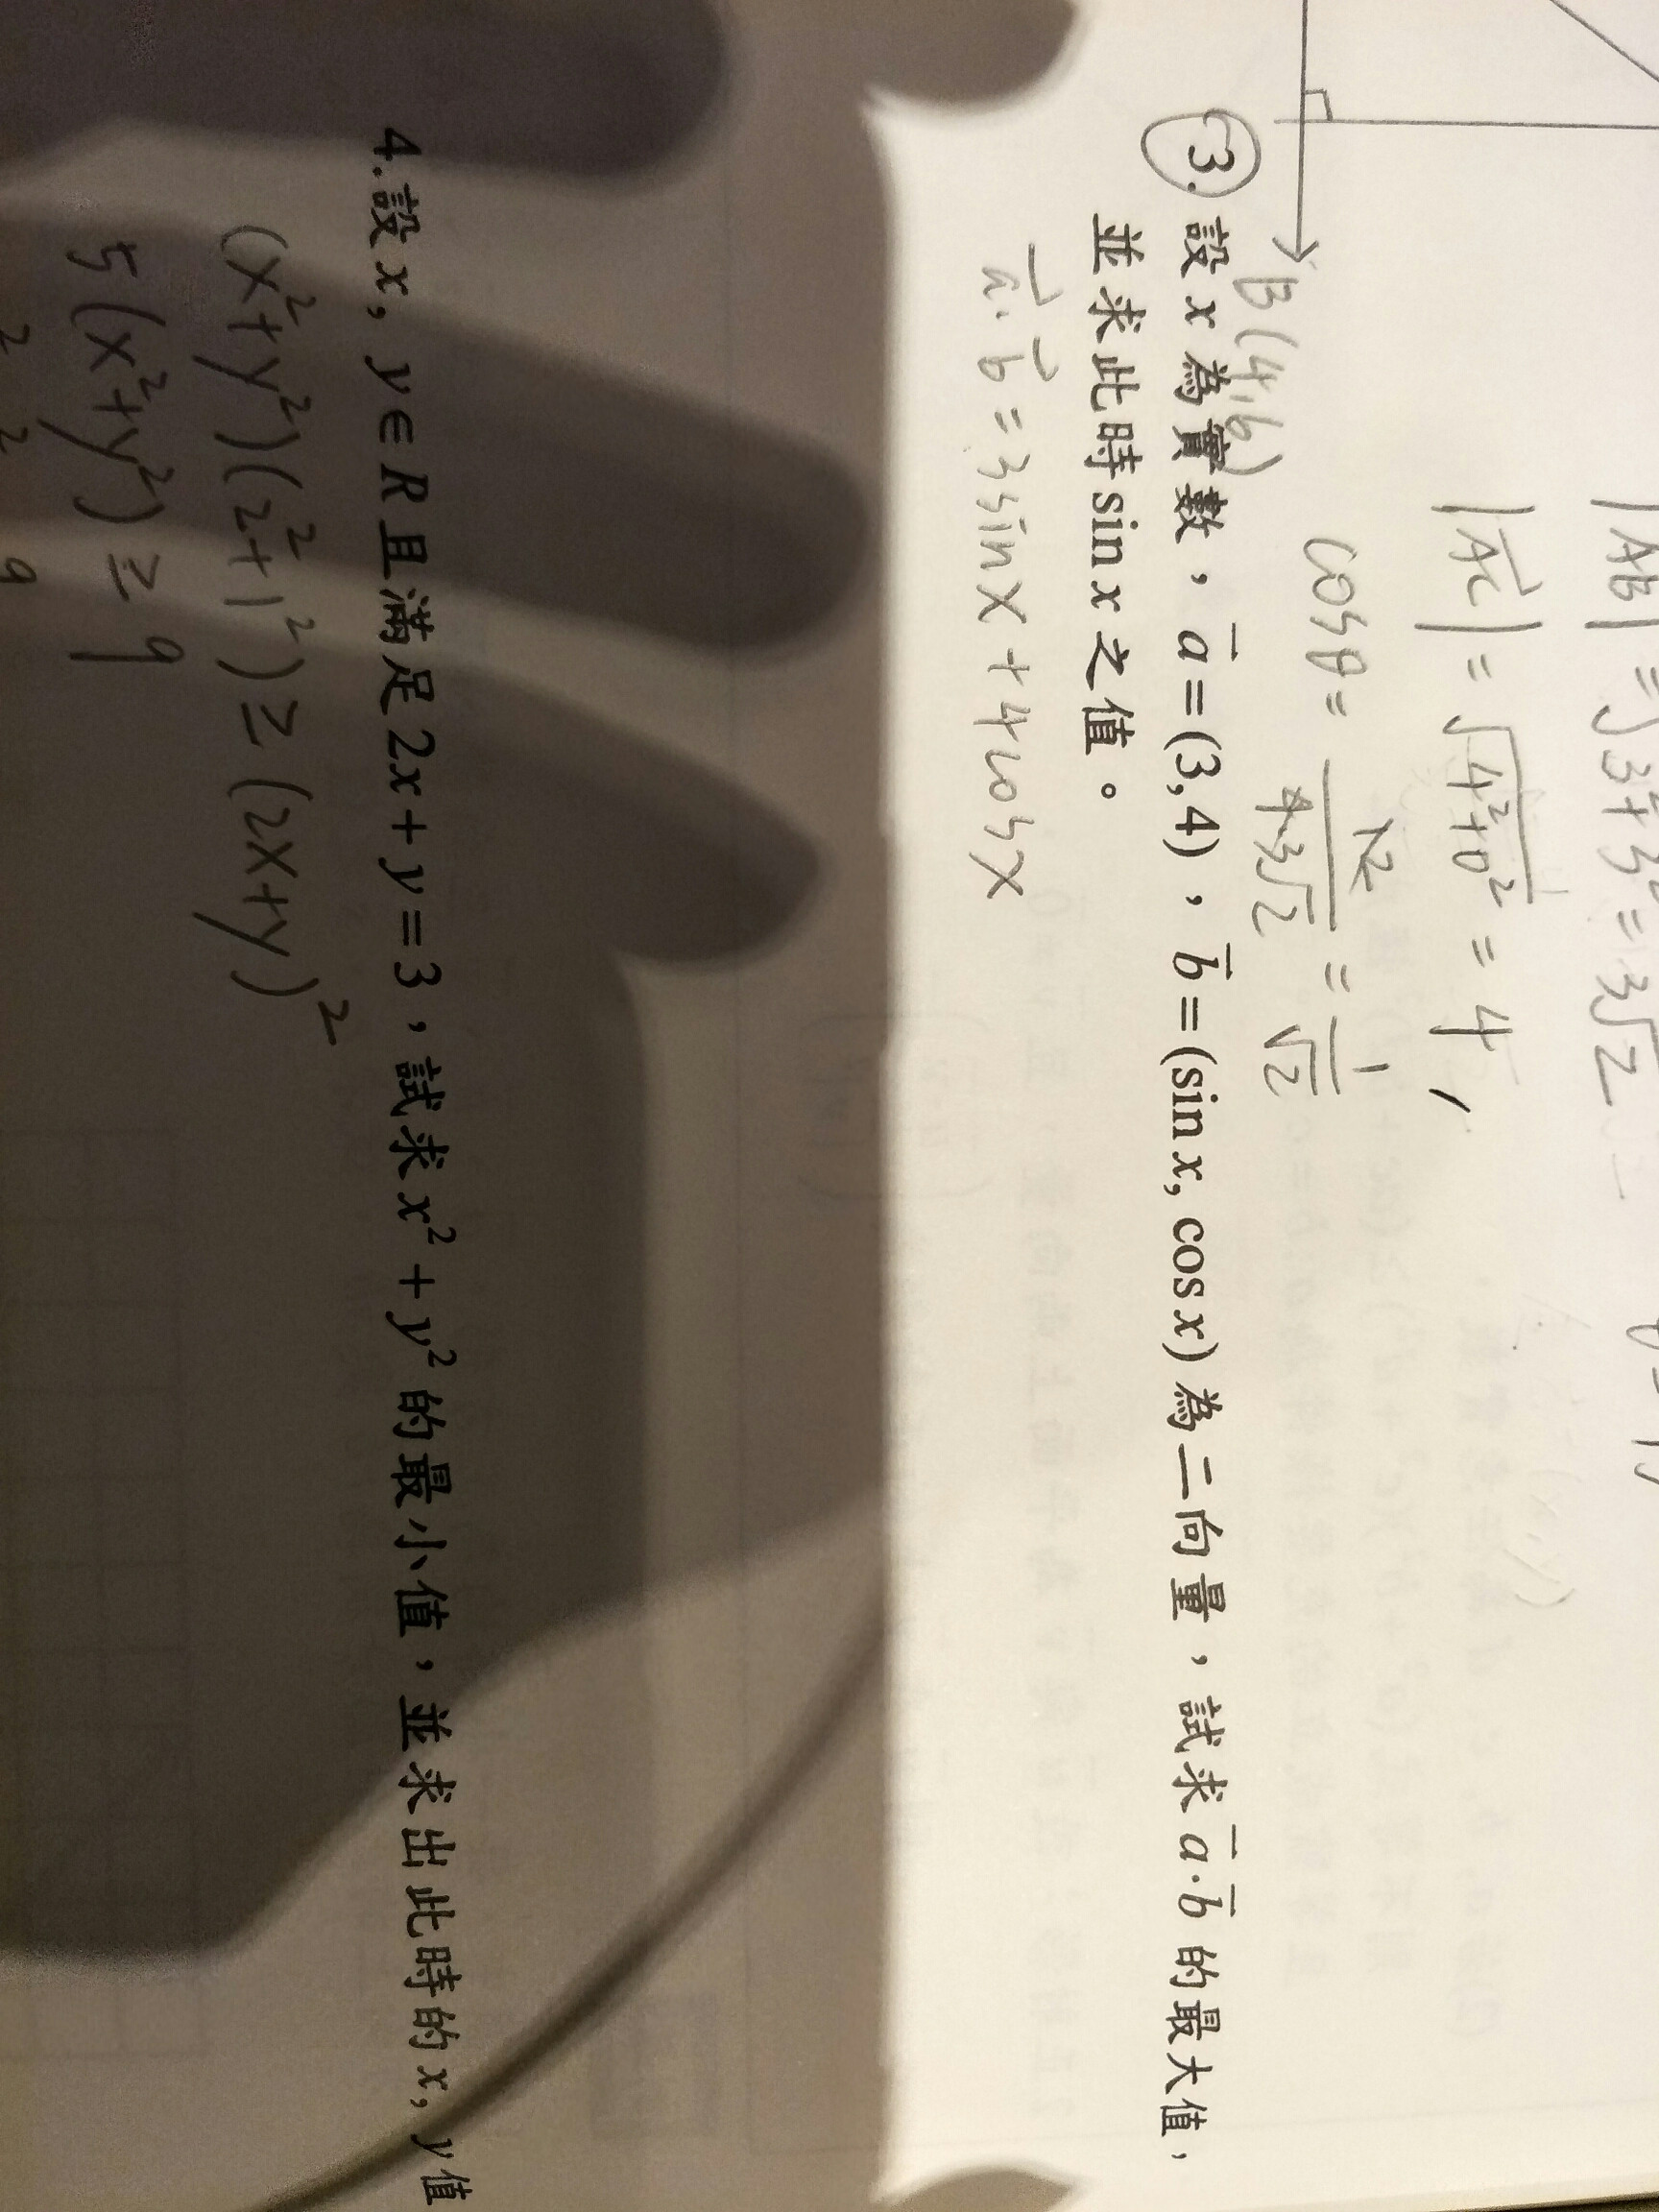 |AB| = √3²+3² = 3√2
|AC| = √4²+0² = 4,
cosθ = 12/4·3√2 = 1/√2
B(4,6)
3. 設 x 為實數，a=(3,4)，b=(sin x, cos x) 為二向量，試求 a·b 的最大值，
並求此時 sin x 之值。
a·b = 3sinx + 4cosx
4.設 x, y∈R 且滿足 2x+y=3，試求 x²+y² 的最小值，並求出此時的 x, y 值
(x²+y²)(2²+1²) ≥ (2x+y)²
5(x²+y²) ≥ 9